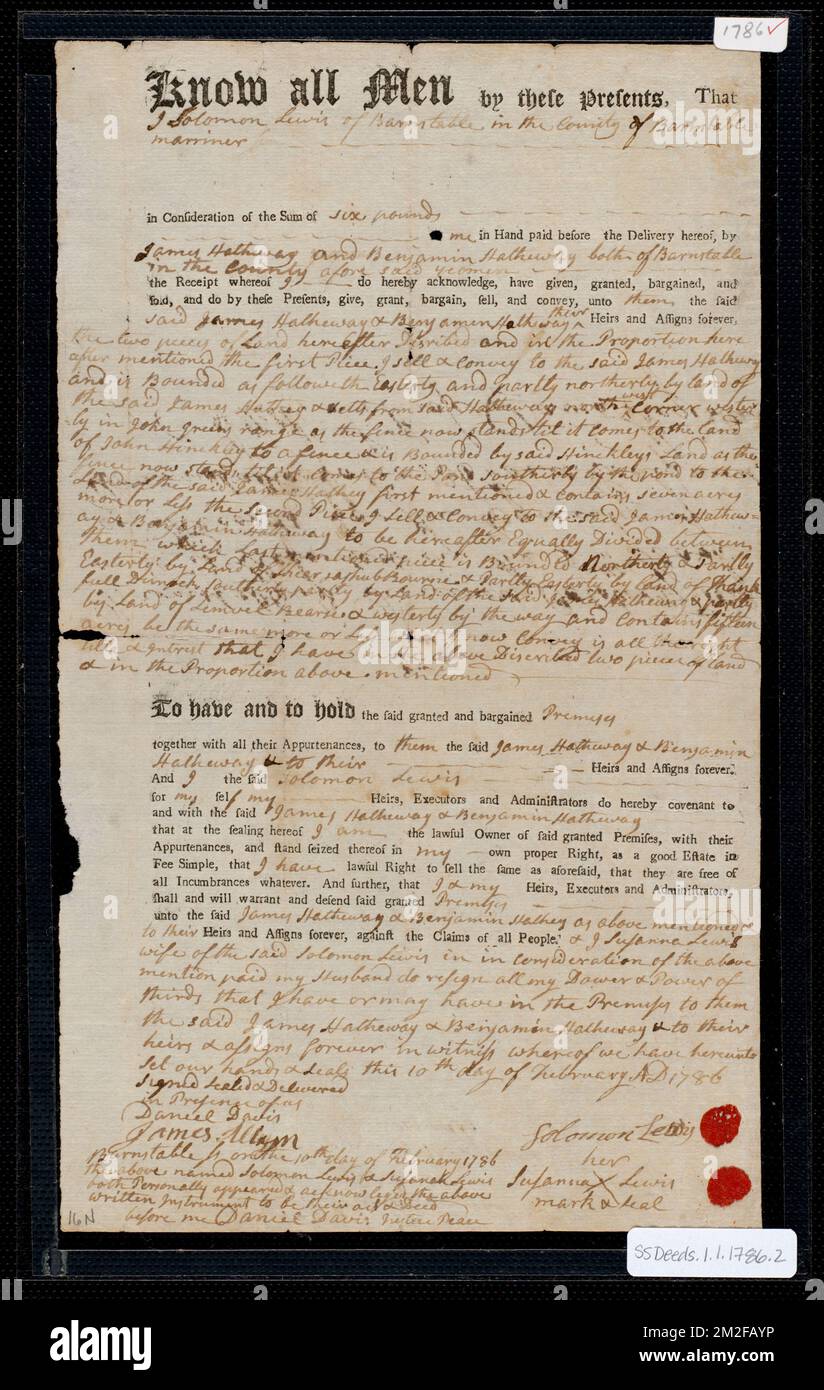 1786✓
Know all Men by these Presents, That
I Solomon Lewis of Barnstable in the County of Barnstable
marriner
in Consideration of the Sum of six pounds
me in Hand paid before the Delivery hereof, by
James Hatheway and Benjamin Hatheway both of Barnstable
in the County afore said yeomen
the Receipt whereof I do hereby acknowledge, have given, granted, bargained, and
sold, and do by these Presents, give, grant, bargain, sell, and convey, unto them the said
said James Hatheway & Benjamen Hatheway their Heirs and Assigns forever,
the two pieces of Land hereafter Discribed and in the Proportion here
after mentioned the first Piece I sell & Convey to the said James Hatheway
and is Bounded as followeth Easterly and partly northerly by land of
the said James & setts from said Hatheways north west Corner wester
ly in John greens range as the fence now stands til it comes to the land
of John Hinckley to a fence & is Bounded by said Hinckleys Land as the
fence now stands til it Comes to the Pond southerly by the pond to the
Land of the said James Hathey first mentioned & Contains seven acres
more or Less the second Piece I sell & Convey to the said James Hathew=
ay & Benjamin Hatheway to be hereafter Equally Divided between
them which Last mentioned piece is Bounded Northerly & Partly
Easterly by Land of Bourse & Partly Easterly by land of Thank
full Dimock southerly partly by Land of the said James Hatheway & partly
by Land of Lemuel Bearse & westerly by the way and Contains fifteen
acres be the same more or Less I now Convey is all the right
title & Intrest that I have in the above Discribed two pieces of land
& in the Proportion above mentioned
To have and to hold the said granted and bargained Premises
together with all their Appurtenances, to them the said James Hatheway & Benjamin
Hatheway & to their Heirs and Assigns forever.
And I the said Solomon Lewis
for my self my Heirs, Executors and Administrators do hereby covenant to
and with the said James Hatheway & Benjamin Hatheway
that at the sealing hereof I am the lawful Owner of said granted Premises, with their
Appurtenances, and stand seized thereof in my own proper Right, as a good Estate in
Fee Simple, that I have lawful Right to sell the same as aforesaid, that they are free of
all Incumbrances whatever. And further, that I & my Heirs, Executors and Administrators,
shall and will warrant and defend said granted Premises
unto the said James Hatheway & Benjamin Hathey as above mentioned &
to their Heirs and Assigns forever, against the Claims of all People. & I Susanna Lewis
wife of the said Solomon Lewis in in consideration of the above
mention paid my Husband do resign all my Dower & Power of
thirds that I have or may have in the Premises to them
the said James Hatheway & Benjamin Hatheway & to their
heirs & assigns forever in witness whereof we have hereunto
set our hands & seals this 10th day of February AD 1786
Signed Sealed & Delivered
in Presence of us
Daniel Davis
James Allyn
Solomon Lewis
her
Susanna X Lewis
mark & seal
Barnstable Ss on the 10th day of February 1786
the above named Solomon Lewis & Susanah Lewis
both Personally appeared & acknowleged the above
written Instrument to be their act & Deed
before me Daniel Davis Justice Peace
16N
SSDeeds.1.1.1786.2
alamy
Image ID: 2M2FAYP
www.alamy.com